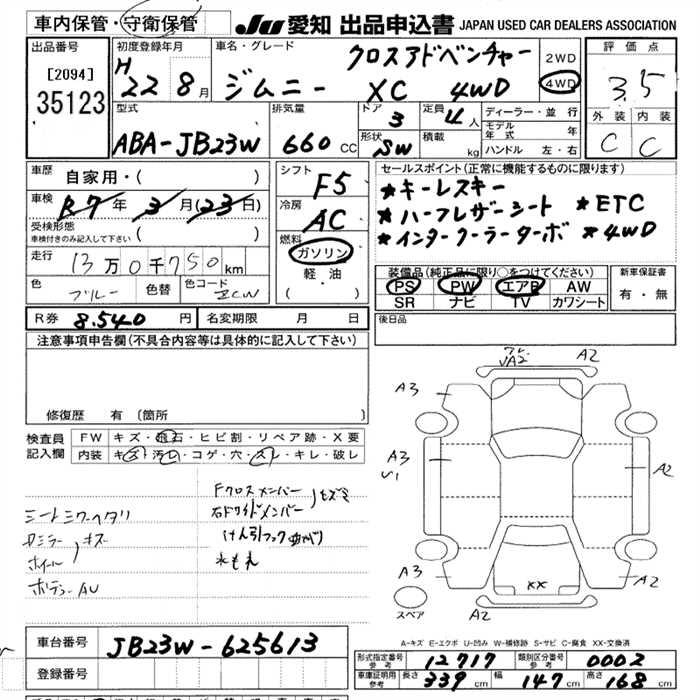 車内保管・守衛保管
JU 愛知 出品申込書 JAPAN USED CAR DEALERS ASSOCIATION
出品番号
[2094]
35123
初度登録年月
H 22 8月
車名・グレード
クロスアドベンチャー
ジムニー XC 4WD
2WD
4WD
評価点
3.5
外装 内装
C C
型式
ABA-JB23W
排気量
660 CC
ドア
3
形状
SW
定員
4人
積載
kg
ディーラー・並行
モデル年式 年
ハンドル 左・右
車歴
自家用・( )
車検
R7年3月(23日)
受検形態
車検付きのみ記入して下さい ( )
走行
13万0千750km
色
ブルー
色替
色コード
ZCW
シフト
F5
冷房
AC
燃料
ガソリン
・
軽・油
( )
セールスポイント(正常に機能するものに限ります)
★キーレスキー
★ハーフレザーシート ★ETC
★インタークーラーターボ ★4WD
装備品(純正品に限り○をつけてください)
PS PW エアB AW
SR ナビ TV カワシート
新車保証書
有・無
R券 8.540円
名変期限 月 日
後日品
注意事項申告欄(不具合内容等は具体的に記入して下さい)
修復歴 有 〔箇所 〕
検査員記入欄
FW キズ・飛石・ヒビ割・リペア跡・X要
内装 キズ・汚レ・コゲ・穴・スレ・キレ・破レ
シートシワヘタリ
ホイール
キズ
Fクロスメンバー
右Fサイドメンバー
けん引フック曲がり
A2
A2
A3
A3
A3
A2
A2
A2
XX
スペア
A-キズ E-エクボ U-凹み W-補修跡 S-サビ C-腐食 XX-交換済
車台番号
JB23W-625613
登録番号
形式指定番号 参考 12717
類別区分番号 参考 0002
車庫証明用 参考 長さ 339cm 幅 147cm 高さ 168cm